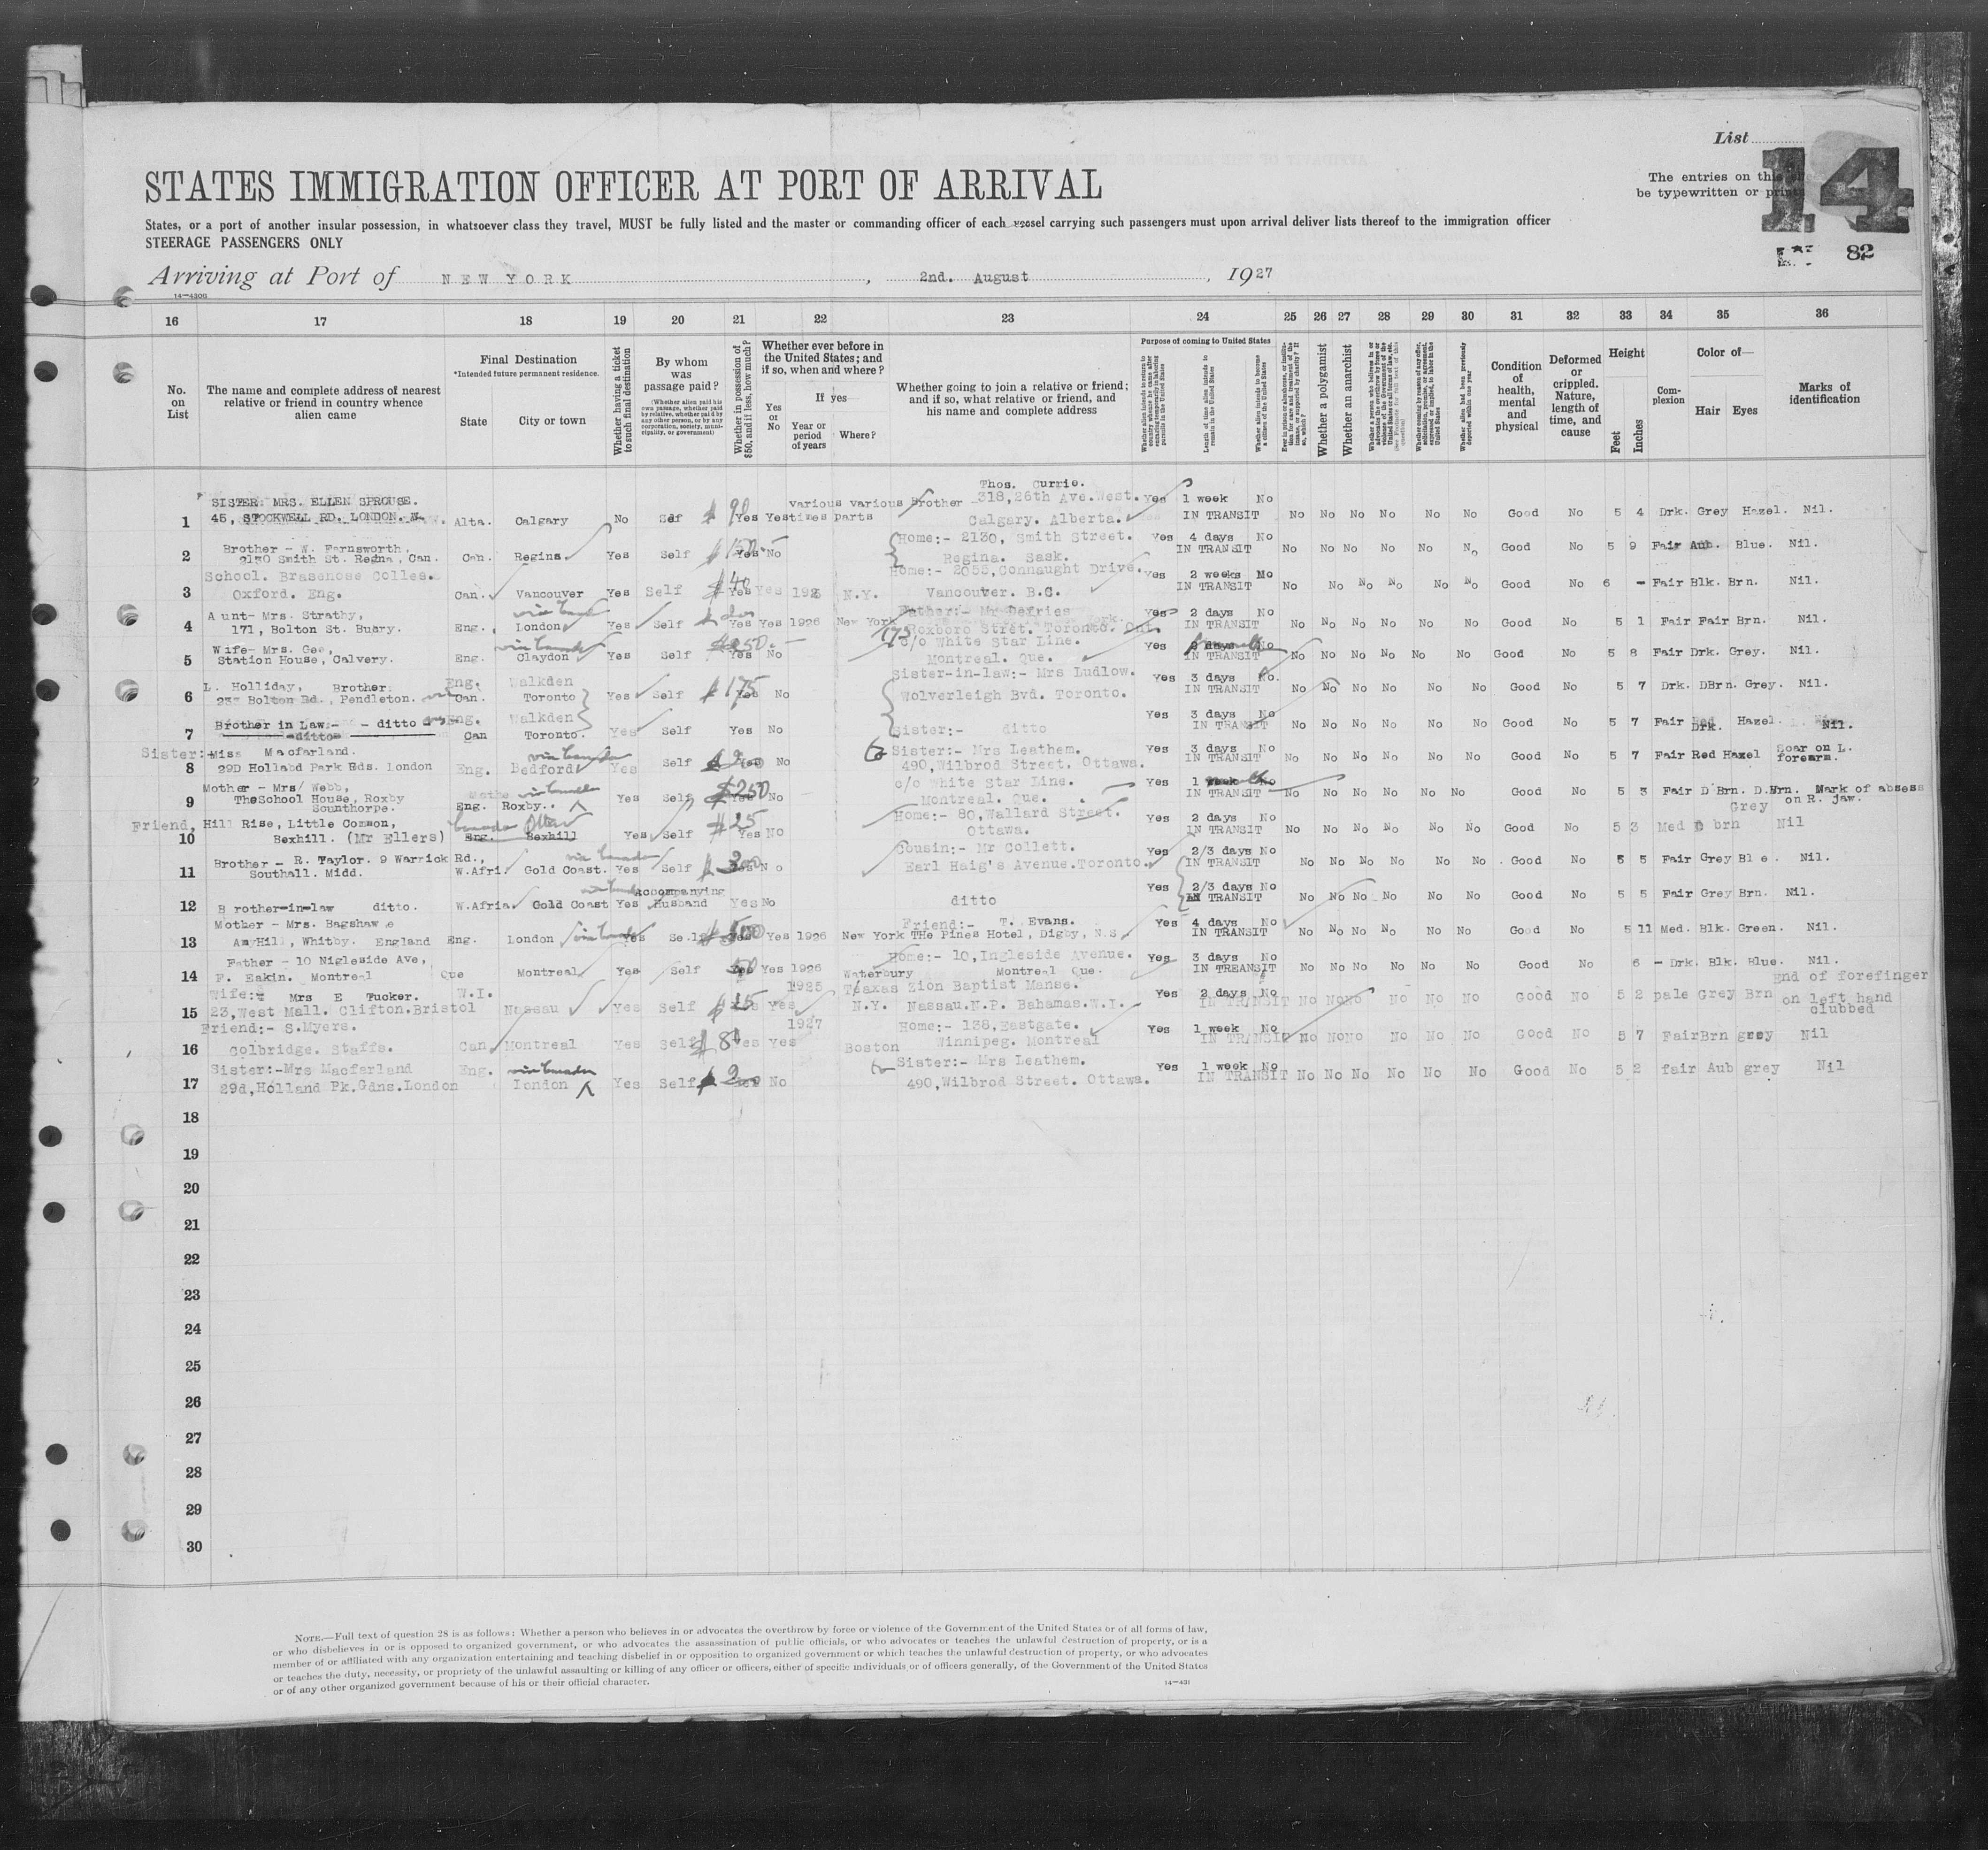 List
14
The entries on this
be typewritten or print
82
STATES IMMIGRATION OFFICER AT PORT OF ARRIVAL
States, or a port of another insular possession, in whatsoever class they travel, MUST be fully listed and the master or commanding officer of each vessel carrying such passengers must upon arrival deliver lists thereof to the immigration officer
STEERAGE PASSENGERS ONLY
Arriving at Port of NEW YORK, 2nd. August, 1927
16 17 18 19 20 21 22 23 24 25 26 27 28 29 30 31 32 33 34 35 36
No. on List
The name and complete address of nearest relative or friend in country whence alien came
Final Destination
*Intended future permanent residence.
State
City or town
Whether having a ticket to such final destination
By whom was passage paid?
(Whether alien paid his own passage, whether paid by relative, whether paid by any other person, or by any corporation, society, municipality, or government)
Whether in possession of $50, and if less, how much?
Whether ever before in the United States; and if so, when and where?
Yes or No
If yes—
Year or period of years
Where?
Whether going to join a relative or friend; and if so, what relative or friend, and his name and complete address
Purpose of coming to United States
Length of time alien intends to remain in the United States
Whether alien intends to become a citizen of the United States
Whether a polygamist
Whether an anarchist
Condition of health, mental and physical
Deformed or crippled. Nature, length of time, and cause
Height
Feet
Inches
Complexion
Color of—
Hair
Eyes
Marks of identification
1 SISTER: MRS. ELLEN SPROUSE. 45, STOCKWELL RD. LONDON. Alta. Calgary No Self $90 Yes Yes various times various parts Brother Thos. Currie. 318, 26th Ave. West. Calgary. Alberta. Yes 1 week No IN TRANSIT No No No No No No Good No 5 4 Drk. Grey Hazel. Nil.
2 Brother - W. Farnsworth, 2130 Smith St. Regna, Can. Can. Regina Yes Self $150 Yes No Home:- 2130, Smith Street. Regina. Sask. Yes 4 days No IN TRANSIT No No No No No No Good No 5 9 Fair Aub. Blue. Nil.
3 School. Brasenose Colles. Oxford. Eng. Can. Vancouver Yes Self $40 Yes Yes N.Y. Home:- 2055, Connaught Drive. Vancouver. B.C. Yes 2 weeks No IN TRANSIT No No No No No No Good No 6 - Fair Blk. Brn. Nil.
4 Aunt- Mrs. Strathy, 171, Bolton St. Budry. Eng. London via Canada Yes Self Yes Yes 1926 New York Mr Defries 175 Roxboro Stret. Toronto. Ont Yes 2 days No IN TRANSIT No No No No No No Good No 5 1 Fair Fair Brn. Nil.
5 Wife- Mrs. Geo, Station House, Calvery. Eng. Claydon via Canada Yes Self $250.- Yes No c/o White Star Line. Montreal. Que. Yes No IN TRANSIT No No No No No No Good No 5 8 Fair Drk. Grey. Nil.
6 L. Holliday, Brother. Bolton Rd., Pendleton. Eng. Can. Walkden Toronto Yes Self $175 Yes No Sister-in-law:- Mrs Ludlow. Wolverleigh Bvd. Toronto. Yes 3 days No. IN TRANSIT No No No No No No Good No 5 7 Drk. DBrn. Grey. Nil.
7 Brother in Law:- - ditto - ditto Eng. Can Walkden Toronto. Yes Self Yes No Sister:- ditto Yes 3 days No IN TRANSIT No No No No No No Good No 5 7 Fair Drk. Hazel. Nil.
8 Sister:- Miss Macfarland. 29D Hollabd Park Rds. London Eng. Bedford via Canada Yes Self Yes No to Sister:- Mrs Leathem. 490, Wilbrod Street. Ottawa. Yes 3 days No IN TRANSIT No No No No No No Good No 5 7 Fair Red Hazel Scar on L. forearm.
9 Mother - Mrs/ Webb, TheSchool House, Roxby Sounthorpe. Eng. Roxby.. via Canada Yes Self $250 Yes No c/o White Star Line. Montreal. Que. Yes 1 No IN TRANSIT No No No No No No Good No 5 3 Fair D Brn. D.Brn. Grey Mark of absess on R. jaw.
10 Friend, Hill Rise, Little Common, Bexhill. (Mr Ellers) Eng. Bexhill Canada Ottawa Yes Self $25 Yes No Home:- 80, Wallard Street. Ottawa. Yes 2 days No IN TRANSIT No No No No No No Good No 5 3 Med D brn Nil
11 Brother - R. Taylor. 9 Warrick Rd., Southall. Midd. W.Afri. Gold Coast. via Canada Yes Self $300 Yes No Cousin:- Mr Collett. Earl Haig's Avenue. Toronto. Yes 2/3 days No IN TRANSIT No No No No No No Good No 5 5 Fair Grey Ble. Nil.
12 Brother-in-law ditto. W.Afria. Gold Coast via Canada Yes Accompanying Husband Yes No ditto Yes 2/3 days No IN TRANSIT No No No No No No Good No 5 5 Fair Grey Brn. Nil.
13 Mother - Mrs. Bagshawe AmyHill, Whitby. England Eng. London via Canada Yes Self Yes Yes 1926 New York Friend:- T. Evans. THe Pines Hotel, Digby, N.S. Yes 4 days No IN TRANSIT No No No No No No Good No 5 11 Med. Blk. Green. Nil.
14 Father - 10 Nigleside Ave, F. Eakin. Montreal Que Montreal Yes Self 50 Yes Yes 1926 Waterbury Home:- 10, Ingleside Avenue. Montreal Que. Yes 3 days No IN TREANSIT No No No No No No Good No 6 - Drk. Blk. Blue. Nil.
15 Wife:- Mrs E Tucker. 23, West Mall. Clifton. Bristol W.I. Nassau Yes Self $25 Yes 1925 Texas N.Y. Zion Baptist Manse. Nassau. N.P. Bahamas. W.I. Yes 2 days No IN TRANSIT No No No No No No Good No 5 2 pale Grey Brn end of forefinger on left hand clubbed
16 Friend:- S.Myers. Colbridge. Staffs. Can. Montreal Yes Self $80 Yes Yes 1927 Boston Home:- 138, Eastgate. Winnipeg. Montreal Yes 1 week No IN TRANSIT No No No No No No Good No 5 7 Fair Brn grey Nil
17 Sister:-Mrs Macfarland 29d, Holland Pk. Gdns. London Eng. London via Canada Yes Self Yes No to Sister:- Mrs Leathem. 490, Wilbrod Street. Ottawa. Yes 1 week No IN TRANSIT No No No No No No Good No 5 2 fair Aub grey Nil
18
19
20
21
22
23
24
25
26
27
28
29
30
NOTE.—Full text of question 28 is as follows: Whether a person who believes in or advocates the overthrow by force or violence of the Government of the United States or of all forms of law,
or who disbelieves in or is opposed to organized government, or who advocates the assassination of public officials, or who advocates or teaches the unlawful destruction of property, or is a
member of or affiliated with any organization entertaining and teaching disbelief in or opposition to organized government or which teaches the unlawful destruction of property, or who advocates
or teaches the duty, necessity, or propriety of the unlawful assaulting or killing of any officer or officers, either of specific individuals or of officers generally, of the Government of the United States
or of any other organized government because of his or their official character.
14—431